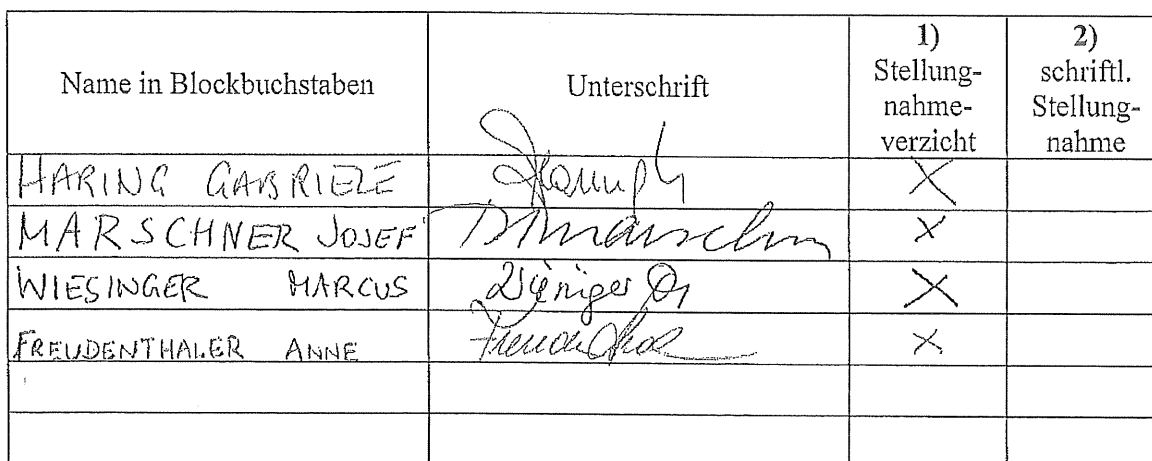 Name in Blockbuchstaben
Unterschrift
1)
Stellung-
nahme-
verzicht
2)
schriftl.
Stellung-
nahme
HARING GABRIELE
X
MARSCHNER JOSEF
X
WIESINGER MARCUS
X
FREUDENTHALER ANNE
X